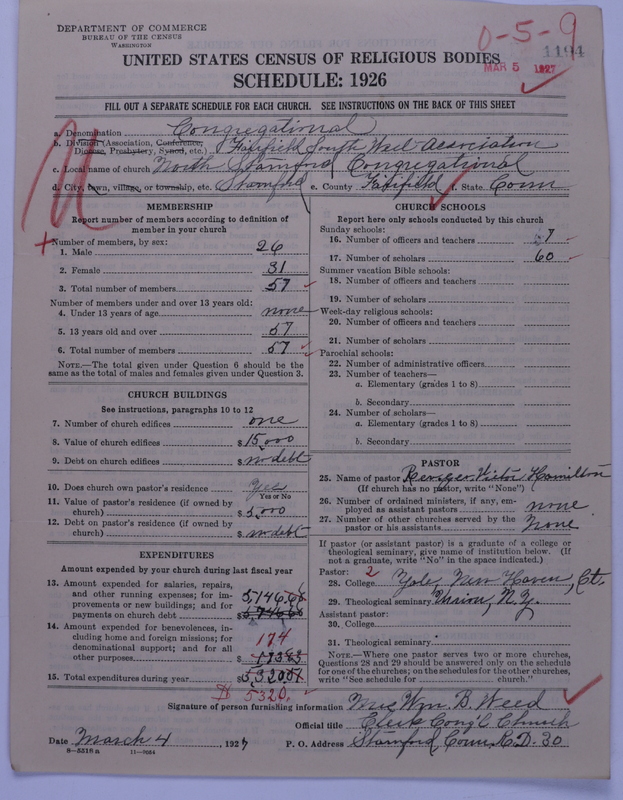 DEPARTMENT OF COMMERCE
BUREAU OF THE CENSUS
WASHINGTON
0-5-9
1194
MAR 5 1927
UNITED STATES CENSUS OF RELIGIOUS BODIES
SCHEDULE: 1926
FILL OUT A SEPARATE SCHEDULE FOR EACH CHURCH. SEE INSTRUCTIONS ON THE BACK OF THIS SHEET
a. Denomination Congregational
b. Division (Association, Conference, Diocese, Presbytery, Synod, etc.) Fairfield South West Association
c. Local name of church North Stamford Congregational
d. City, town, village, or township, etc. Stamford e. County Fairfield f. State Conn
MEMBERSHIP
Report number of members according to definition of
member in your church
Number of members, by sex:
1. Male 26
2. Female 31
3. Total number of members 57
Number of members under and over 13 years old:
4. Under 13 years of age none
5. 13 years old and over 57
6. Total number of members 57
NOTE.—The total given under Question 6 should be
same as the total of males and females given under Question 3.
CHURCH BUILDINGS
See instructions, paragraphs 10 to 12
7. Number of church edifices one
8. Value of church edifices $15,000
9. Debt on church edifices $ no debt
10. Does church own pastor's residence yes
Yes or No
11. Value of pastor's residence (if owned by
church) $5,000
12. Debt on pastor's residence (if owned by
church) $ no debt
EXPENDITURES
Amount expended by your church during last fiscal year
13. Amount expended for salaries, repairs,
and other running expenses; for im-
provements or new buildings; and for
payments on church debt 5146.68
14. Amount expended for benevolences, in-
cluding home and foreign missions; for
denominational support; and for all
other purposes 174 $ 173.83
15. Total expenditures during year $5320.51
5320.
CHURCH SCHOOLS
Report here only schools conducted by this church
Sunday schools:
16. Number of officers and teachers 7
17. Number of scholars 60
Summer vacation Bible schools:
18. Number of officers and teachers
19. Number of scholars
Week-day religious schools:
20. Number of officers and teachers
21. Number of scholars
Parochial schools:
22. Number of administrative officers
23. Number of teachers—
a. Elementary (grades 1 to 8)
b. Secondary
24. Number of scholars—
a. Elementary (grades 1 to 8)
b. Secondary
PASTOR
25. Name of pastor Victor Hamilton
(If church has no pastor, write "None")
26. Number of ordained ministers, if any, em-
ployed as assistant pastors none
27. Number of other churches served by the
pastor or his assistants None
If pastor (or assistant pastor) is a graduate of a college or
theological seminary, give name of institution below. (If
not a graduate, write "No" in the space indicated.)
Pastor: 2
28. College Yale, New Haven, Ct.
29. Theological seminary Union, N.Y.
Assistant pastor:
30. College
31. Theological seminary
NOTE.—Where one pastor serves two or more churches,
Questions 28 and 29 should be answered only on the schedule
for one of the churches; on the schedules for the other churches,
write "See schedule for church."
Signature of person furnishing information Mrs Wm B. Weed
Official title Clerk Cong'l Church
Date March 4, 1927 P. O. Address Stamford Conn. R.D. 30
8—5518 a 11—9054